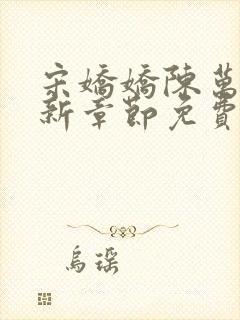 宋嬌嬌陳萬
新章節免費
烏瑤